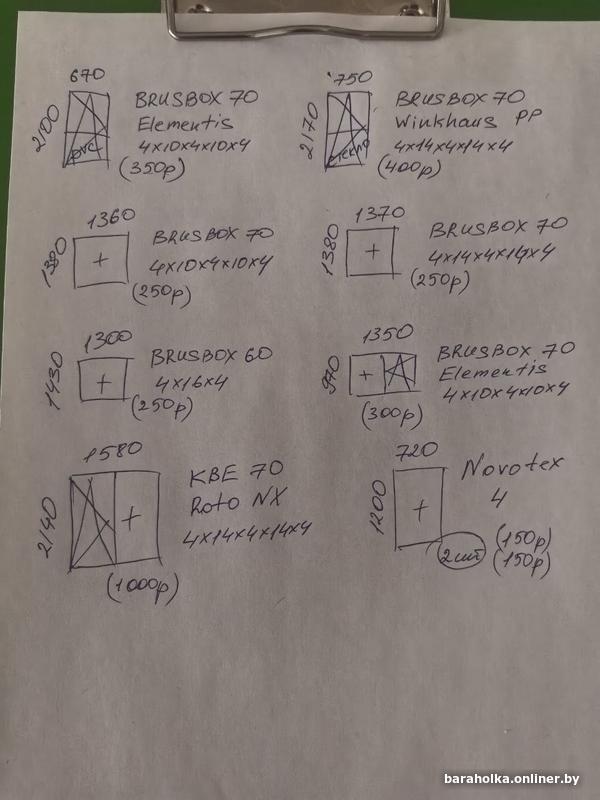 670
2100
BRUSBOX 70
Elementis
4x10x4x10x4
(350р)
750
2170
BRUSBOX 70
Winkhaus PP
4x14x4x14x4
(400р)
1360
1380
BRUSBOX 70
4x10x4x10x4
(250р)
1370
1380
BRUSBOX 70
4x14x4x14x4
(250р)
1300
1430
BRUSBOX 60
4x16x4
(250р)
1350
970
BRUSBOX 70
Elementis
4x10x4x10x4
(300р)
1580
2140
KBE 70
Roto NX
4x14x4x14x4
(1000р)
720
1200
Novotex
4
2шт
(150р)
(150р)
baraholka.onliner.by